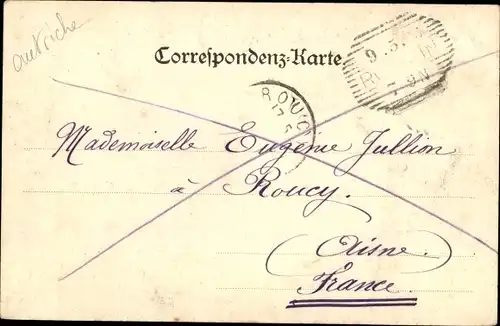 autriche
Correspondenz-Karte
9.3.
7-8N
ROUC
17
Mademoiselle Eugénie Jullion
à Roucy.
(Aisne.)
France.